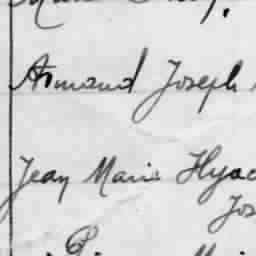 Armand Joseph
Jean Marie Hyac
Jos